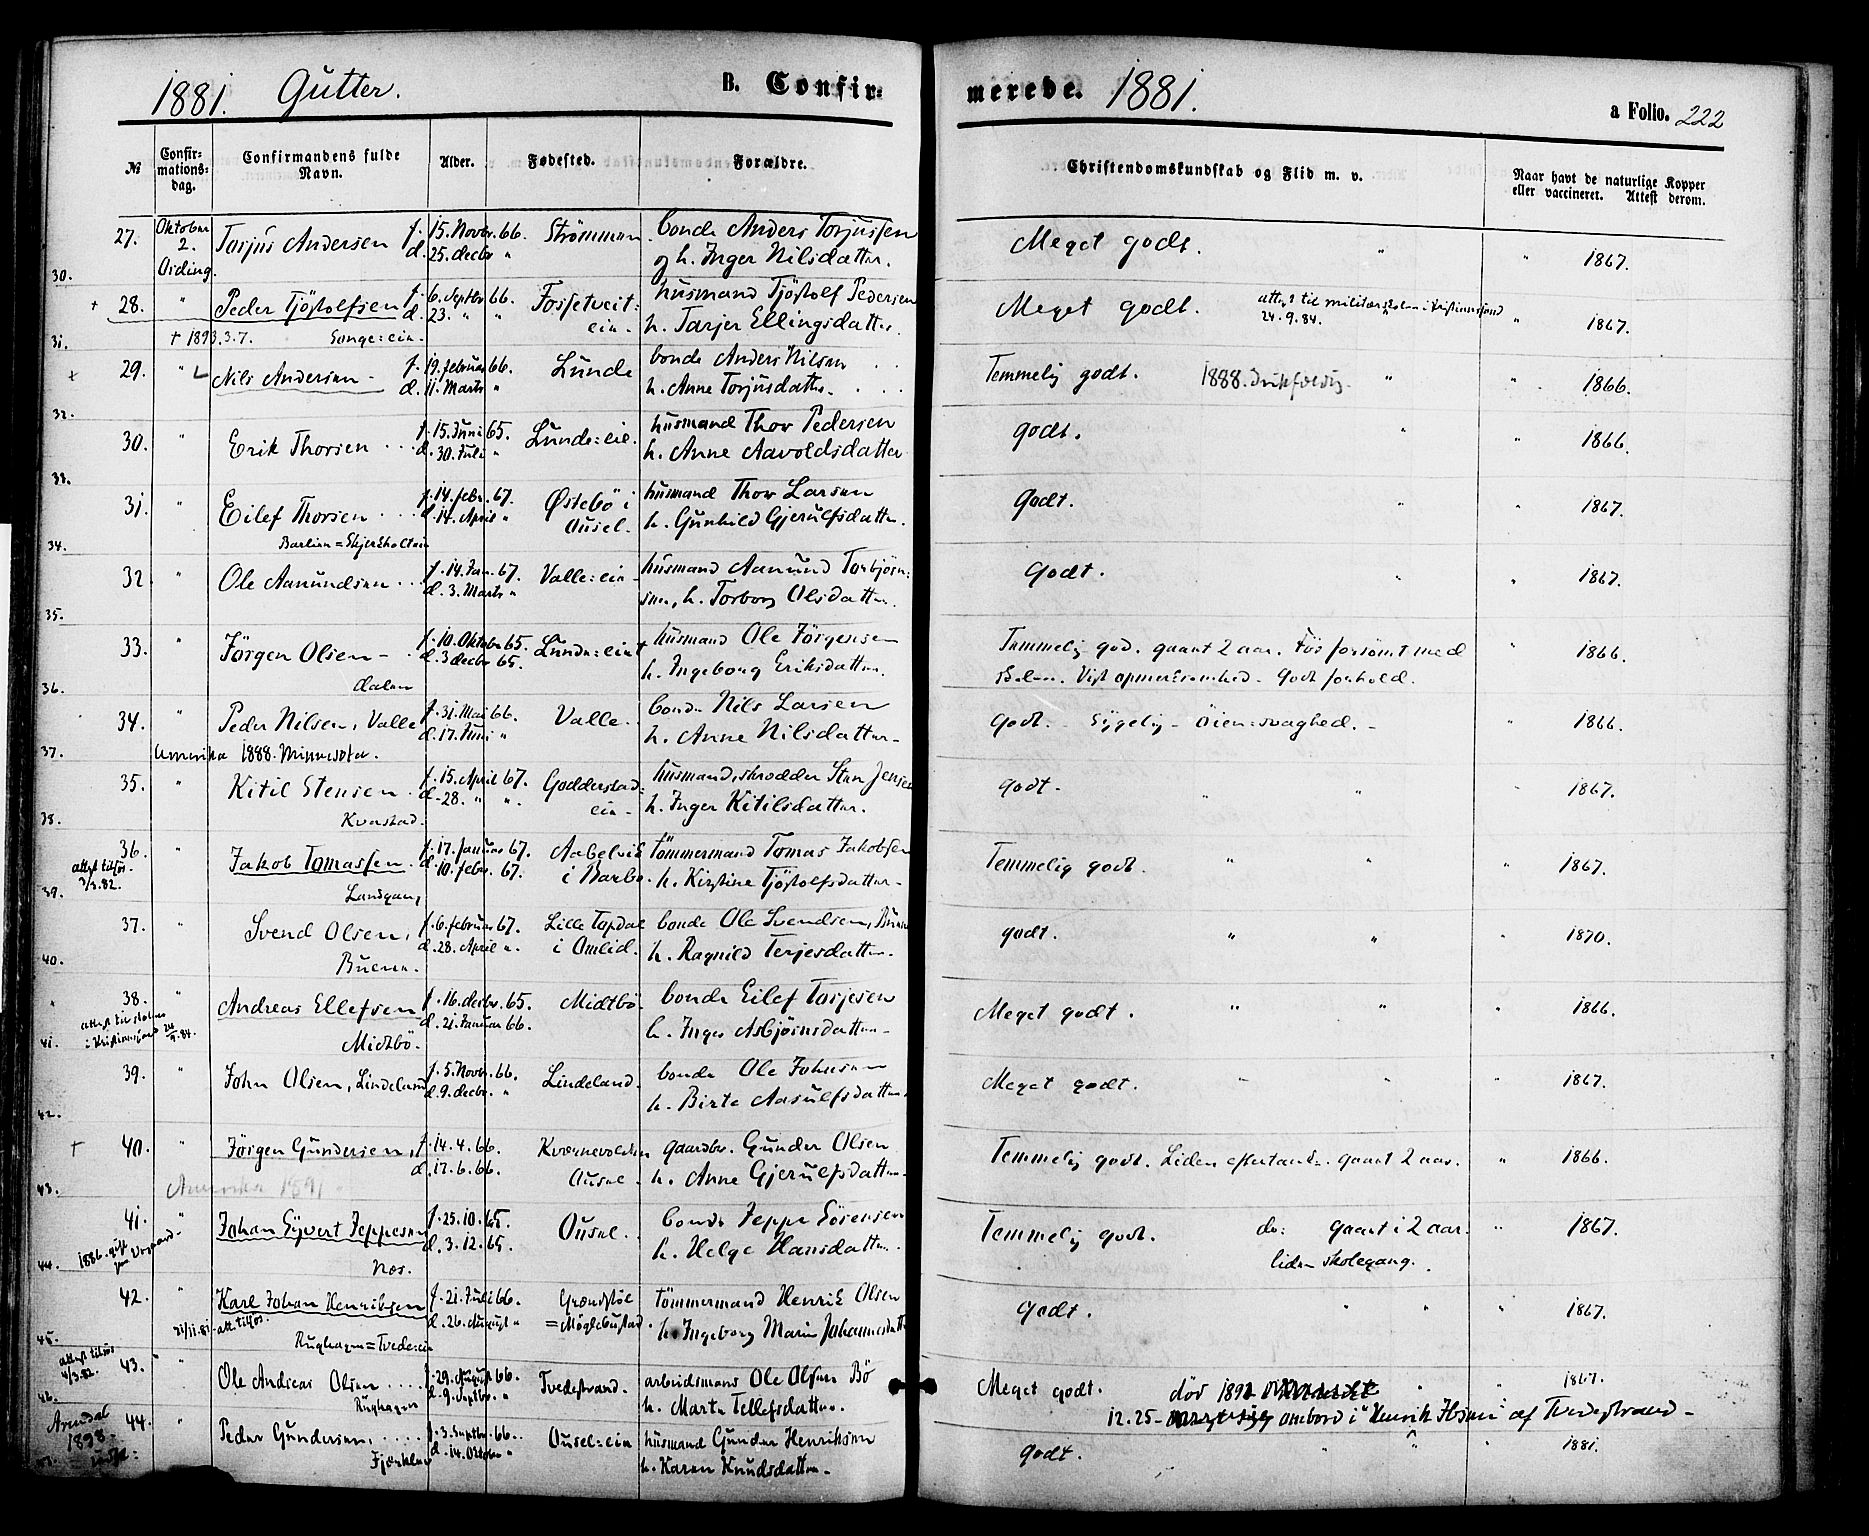 1881. Gutter. B. Confir=
merede. 1881.
a Folio. 222
№ Confir=mations=dag. Confirmandens fulde Navn. Alder. Fødested. Forældre.
Christendomskundskab og Flid m. v. Naar havt de naturlige Kopper eller vaccineret. Attest derom.
27. Oktober 2. Torjus Andersen f. 15. Novbr. 66. Strømmen bonde Anders Torjussen Meget godt. " " 1867.
30. d. 25. decbr " og h. Inger Nilsdatter.
+ 28. " Peder Tjøstolfsen f. 6. Septbr. 66. Fosstveit= husmand Tjøstolf Pedersen Meget godt. " 1867.
31. d. 23. " " eie. h. Tarjer Ellingsdatter. 24.9.84.
+ 1893.3.7. Songe=eie.
29. " Nils Andersen f. 19. februar 66. Lunde bonde Anders Nilsen Temmelig godt. 1888. " " 1866.
32. d. 11. Marts " h. Anne Torjusdatter.
30. " Erik Thorsen f. 15. Juni 65. Lunde=eie. husmand Thor Pedersen godt. " " 1866.
33. d. 30. Juli " h. Anne Aavoldsdatter
31. " Eilef Thorsen f. 14. febr. 67. Østebö i husmand Thor Larsen Godt. " " 1867.
34. d. 14. April " Ousel. h. Gunhild Gjerulfsdatter.
32. " Ole Aanundsen f. 14. Jan. 67. Valle=eie husmand Aanund Torbjörn= Godt. " " 1867.
35. d. 3. Marts " sen, h. Torborg Olsdatter.
33. " Jørgen Olsen f. 10. Oktober 65. Lunde=eiet husmand Ole Jørgensen Temmelig god. gaaet 2 aar. Før forsömt med " 1866.
36. dalen d. 3 decbr 65. h. Ingeborg Eriksdatter. Vist opmerksomhed. Godt forhold.
34. " Peder Nilsen, Valle f. 31. Mai 66. Valle. bonde Nils Larsen Godt. Sygelig - Öien=svaghed. " 1866.
37. d. 17. Juni " h. Anne Nilsdatter
Amerika 1888. Minnesota.
35. " Kitil Stensen f. 15. April 67. Godderstad= husmand, skrædder Sten Jensen godt. " " " 1867.
38. Kvarstad. d. 28. " " eie. h. Inger Kitilsdatter.
36. " Jakob Tomassen f. 17. Januar 67. Aabelvik tömmermand Tomas Jakobsen Temmelig godt. " " " 1867.
39. 3/3.82. Landgang d. 10. febr. 67. i Barbo. h. Kirstine Tjöstolfsdatter
37. " Svend Olsen, f. 6. februar 67. Lille Topdal bonde Ole Svendsen, Buene godt. " " " 1870.
40. Buene. d. 28. April " i Omlid. h. Ragnild Terjesdatter.
38. " Andreas Ellefsen f. 16. decbr. 65. Midtbø. bonde Eilef Torjesen Meget godt. " " " 1866.
41. Midtbö. d. 21. Januar 66. h. Inger Asbjørnsdatter
39. " John Olsen, Lindeland f. 5. Novbr. 66. Lindeland. bonde Ole Johnsen Meget godt. " " " 1867.
42. d. 9. decbr. " h. Birte Aasulfsdatter
+ 40. " Jørgen Gundersen, f. 14.4.66. Kvernevolden gaardbr. Gunder Olsen Temmelig godt. Liden eftertanke. gaaet 2 aar. " 1866.
43. d. 17.6.66. Ousel. h. Anne Gjerulfsdatter
Amerika 1891
41. " Johan Syvert Jeppesen f. 25.10.65. Ousel. bonde Jeppe Sörensen Temmelig godt. do: gaaet i 2 aar. " 1867.
44. Nes. d. 3.12.65. h. Helge Hansdatter. liden skolegang.
42. " Karl Johan Henriksen f. 21. Juli 66. Grændstöl tömmermand Henrik Olsen Godt. " " " 1867.
45. 21/11.81. d. 26. August " =Möglebustad. h. Ingeborg Marie Johannesdatter
Rughagen=Tvede=eie
43. " Ole Andreas Olsen f. 29. August 66. Tvedestrand. arbeidsmand Ole Olsen Bö Meget godt. död 1892 1867.
46. 4/3.82. Rughagen d. 9. Septbr. " h. Marte Tellefsdatter. 12.25- ombord i "Henrik Ibsen" af Tvedestrand -
44. " Peder Gundersen, f. 3. Septbr. 66. Ousel=eie husmand Gunder Henriksen godt. " " " 1881.
Arendal 1898 d. 14. Oktober " h. Karen Knudsdatter